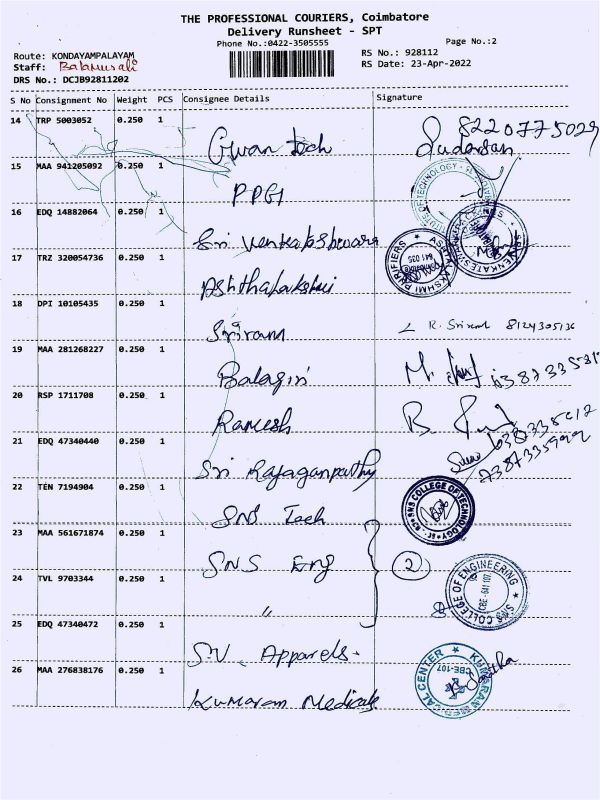 THE PROFESSIONAL COURIERS, Coimbatore
Delivery Runsheet - SPT
Phone No.:0422-3505555
Page No.:2
Route: KONDAYAMPALAYAM
RS No.: 928112
Staff:
RS Date: 23-Apr-2022
DRS No.: DCJB92811202
S No Consignment No Weight PCS Consignee Details Signature
14 TRP 5003052 0.250 1 Tech 8220775029
Sudarsan
15 MAA 941205092 0.250 1 PPG1
16 EDQ 14882064 0.250 1 Sri Venkateshwara
17 TRZ 320054736 0.250 1 Ashthalakshmi
18 DPI 10105435 0.250 1 Sriram R. Sriram 8124305136
19 MAA 281268227 0.250 1 Balagiri M.
20 RSP 1711708 0.250 1 Ramesh B.
21 EDQ 47340440 0.250 1 Sri Rajaganpathy
22 TEN 7194904 0.250 1 SNS Tech
SNS COLLEGE OF TECHNOLOGY
23 MAA 561671874 0.250 1 SNS Eng 2
24 TVL 9703344 0.250 1 "
SNS COLLEGE OF ENGINEERING
CBE-641 107
25 EDQ 47340472 0.250 1 SV. Apparels.
26 MAA 276838176 0.250 1 Kumaran Medicals
KUMARAN MEDICAL CENTER
CBE-107